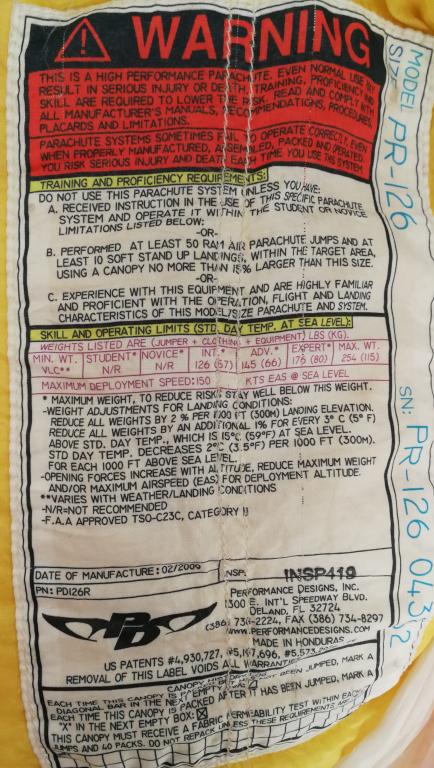 WARNING
THIS IS A HIGH PERFORMANCE PARACHUTE. EVEN NORMAL USE MAY
RESULT IN SERIOUS INJURY OR DEATH. TRAINING, PROFICIENCY AND
SKILL ARE REQUIRED TO LOWER THE RISK. READ AND COMPLY WITH
ALL MANUFACTURER'S MANUALS, RECOMMENDATIONS, PROCEDURES,
PLACARDS AND LIMITATIONS.
PARACHUTE SYSTEMS SOMETIMES FAIL TO OPERATE CORRECTLY, EVEN
WHEN PROPERLY MANUFACTURED, ASSEMBLED, PACKED AND OPERATED.
YOU RISK SERIOUS INJURY AND DEATH EACH TIME YOU USE THIS SYSTEM.
TRAINING AND PROFICIENCY REQUIREMENTS:
DO NOT USE THIS PARACHUTE SYSTEM UNLESS YOU HAVE:
A. RECEIVED INSTRUCTION IN THE USE OF THIS SPECIFIC PARACHUTE
SYSTEM AND OPERATE IT WITHIN THE STUDENT OR NOVICE
LIMITATIONS LISTED BELOW:
-OR-
B. PERFORMED AT LEAST 50 RAM AIR PARACHUTE JUMPS AND AT
LEAST 10 SOFT STAND UP LANDINGS, WITHIN THE TARGET AREA,
USING A CANOPY NO MORE THAN 15% LARGER THAN THIS SIZE.
-OR-
C. EXPERIENCE WITH THIS EQUIPMENT AND ARE HIGHLY FAMILIAR
AND PROFICIENT WITH THE OPERATION, FLIGHT AND LANDING
CHARACTERISTICS OF THIS MODEL/SIZE PARACHUTE AND SYSTEM.
SKILL AND OPERATING LIMITS (STD. DAY TEMP. AT SEA LEVEL):
WEIGHTS LISTED ARE (JUMPER + CLOTHING + EQUIPMENT) LBS (KG).
MIN. WT. STUDENT* NOVICE* INT.* ADV.* EXPERT* MAX. WT.
VLC** N/R N/R 126 (57) 145 (66) 176 (80) 254 (115)
MAXIMUM DEPLOYMENT SPEED: 150 KTS EAS @ SEA LEVEL
* MAXIMUM WEIGHT, TO REDUCE RISK STAY WELL BELOW THIS WEIGHT.
-WEIGHT ADJUSTMENTS FOR LANDING CONDITIONS:
REDUCE ALL WEIGHTS BY 2 % PER 1000 FT (300M) LANDING ELEVATION.
REDUCE ALL WEIGHTS BY AN ADDITIONAL 1% FOR EVERY 3° C (5° F)
ABOVE STD. DAY TEMP., WHICH IS 15°C (59°F) AT SEA LEVEL.
STD DAY TEMP. DECREASES 2°C (3.5°F) PER 1000 FT (300M).
FOR EACH 1000 FT ABOVE SEA LEVEL.
-OPENING FORCES INCREASE WITH ALTITUDE, REDUCE MAXIMUM WEIGHT
AND/OR MAXIMUM AIRSPEED (EAS) FOR DEPLOYMENT ALTITUDE.
**VARIES WITH WEATHER/LANDING CONDITIONS
-N/R=NOT RECOMMENDED
-F.A.A APPROVED TSO-C23C, CATEGORY
DATE OF MANUFACTURE: 02/2006 INSP. INSP419
PN: PD126R
PD
PERFORMANCE DESIGNS, INC.
1300 E. INT'L SPEEDWAY BLVD.
DELAND, FL 32724
(386) 738-2224, FAX (386) 734-8297
WWW.PERFORMANCEDESIGNS.COM
MADE IN HONDURAS
US PATENTS #4,930,727,
REMOVAL OF THIS LABEL VOIDS ALL WARRANTIES
EACH TIME THIS CANOPY IS PACKED BUT HAS NOT BEEN JUMPED, MARK A
DIAGONAL BAR IN THE NEXT EMPTY
EACH TIME THIS CANOPY IS PACKED AFTER IT HAS BEEN JUMPED, MARK A
"X" IN THE NEXT EMPTY BOX:
THIS CANOPY MUST RECEIVE A FABRIC PERMEABILITY TEST WITHIN EACH
JUMPS AND 40 PACKS. DO NOT REPACK UNLESS THESE REQUIREMENTS
MODEL: PR-126
SIZE
SN: PR-126 043